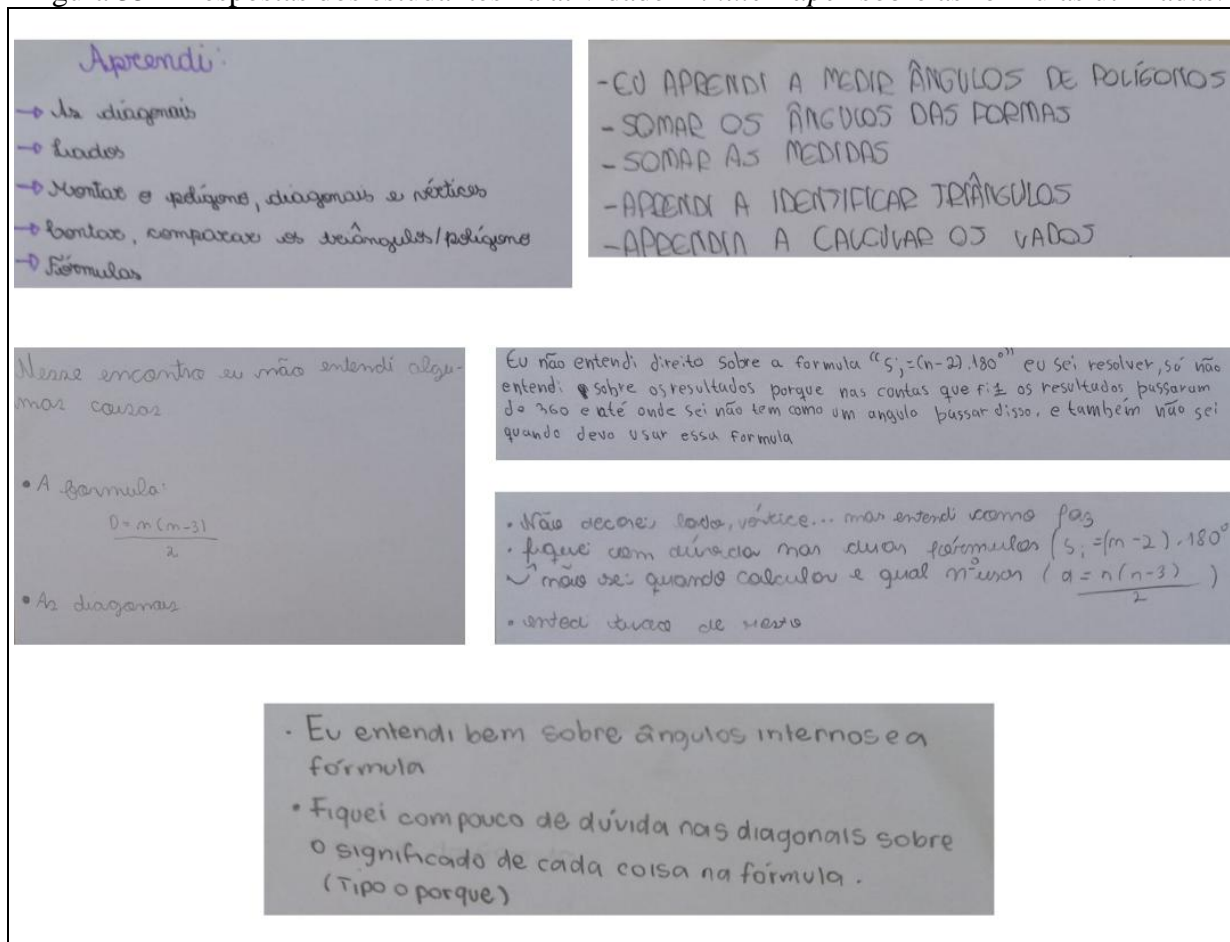 Aprendi:
→ As diagonais
→ Lados
→ Montar o polígono, diagonais e vértices
→ Contar, comparar os triângulos/polígono
→ Fórmulas
- EU APRENDI A MEDIR ÂNGULOS DE POLÍGONOS
- SOMAR OS ÂNGULOS DAS FORMAS
- SOMAR AS MEDIDAS
- APRENDI A IDENTIFICAR TRIÂNGULOS
- APRENDIA A CALCULAR OS LADOS
Nesse encontro eu não entendi algu-
mas coisas
• A formula:
D = n(n-3)
2
• As diagonais
Eu não entendi direito sobre a formula "Si=(n-2).180°" eu sei resolver, só não
entendi sobre os resultados porque nas contas que fiz os resultados passaram
do 360 e até onde sei não tem como um angulo passar disso, e também não sei
quando devo usar essa formula
• Não decorei lado, vértice... mas entendi como faz
• fiquei com dúvida nas duas fórmulas (Si=(n-2).180°
não sei quando calcular e qual nº usar (d = n(n-3))
2
• entedi de resto
• Eu entendi bem sobre ângulos internos e a
fórmula
• Fiquei com pouco de dúvida nas diagonais sobre
o significado de cada coisa na fórmula.
(Tipo o porque)